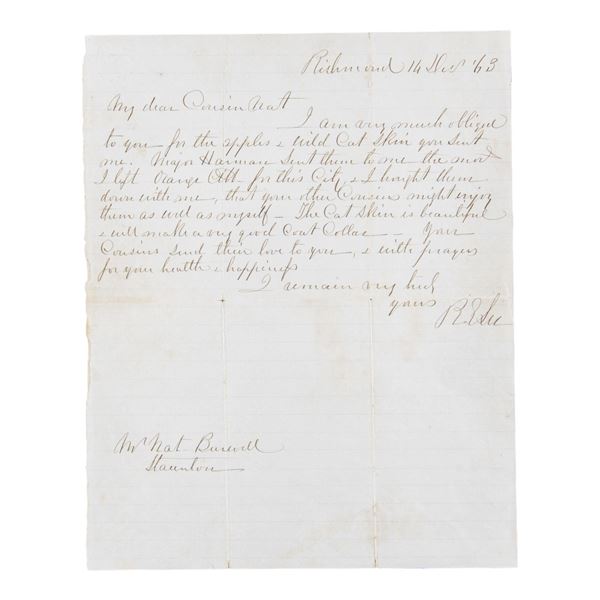 Richmond 14 Decr '63
My dear Cousin Natt
I am very much obliged
to you for the apples & wild Cat Skin you sent
me. Major Harman sent them to me the
I left Orange for this City, & I brought them
down with me, that your other Cousins might enjoy
them as well as myself – The Cat Skin is beautiful
& will make a very good Coat Collar – Your
Cousins send their love to you, & with prayers
for your health & happiness
I remain very truly
yours
R E Lee
Mr Nat Burwell
Staunton